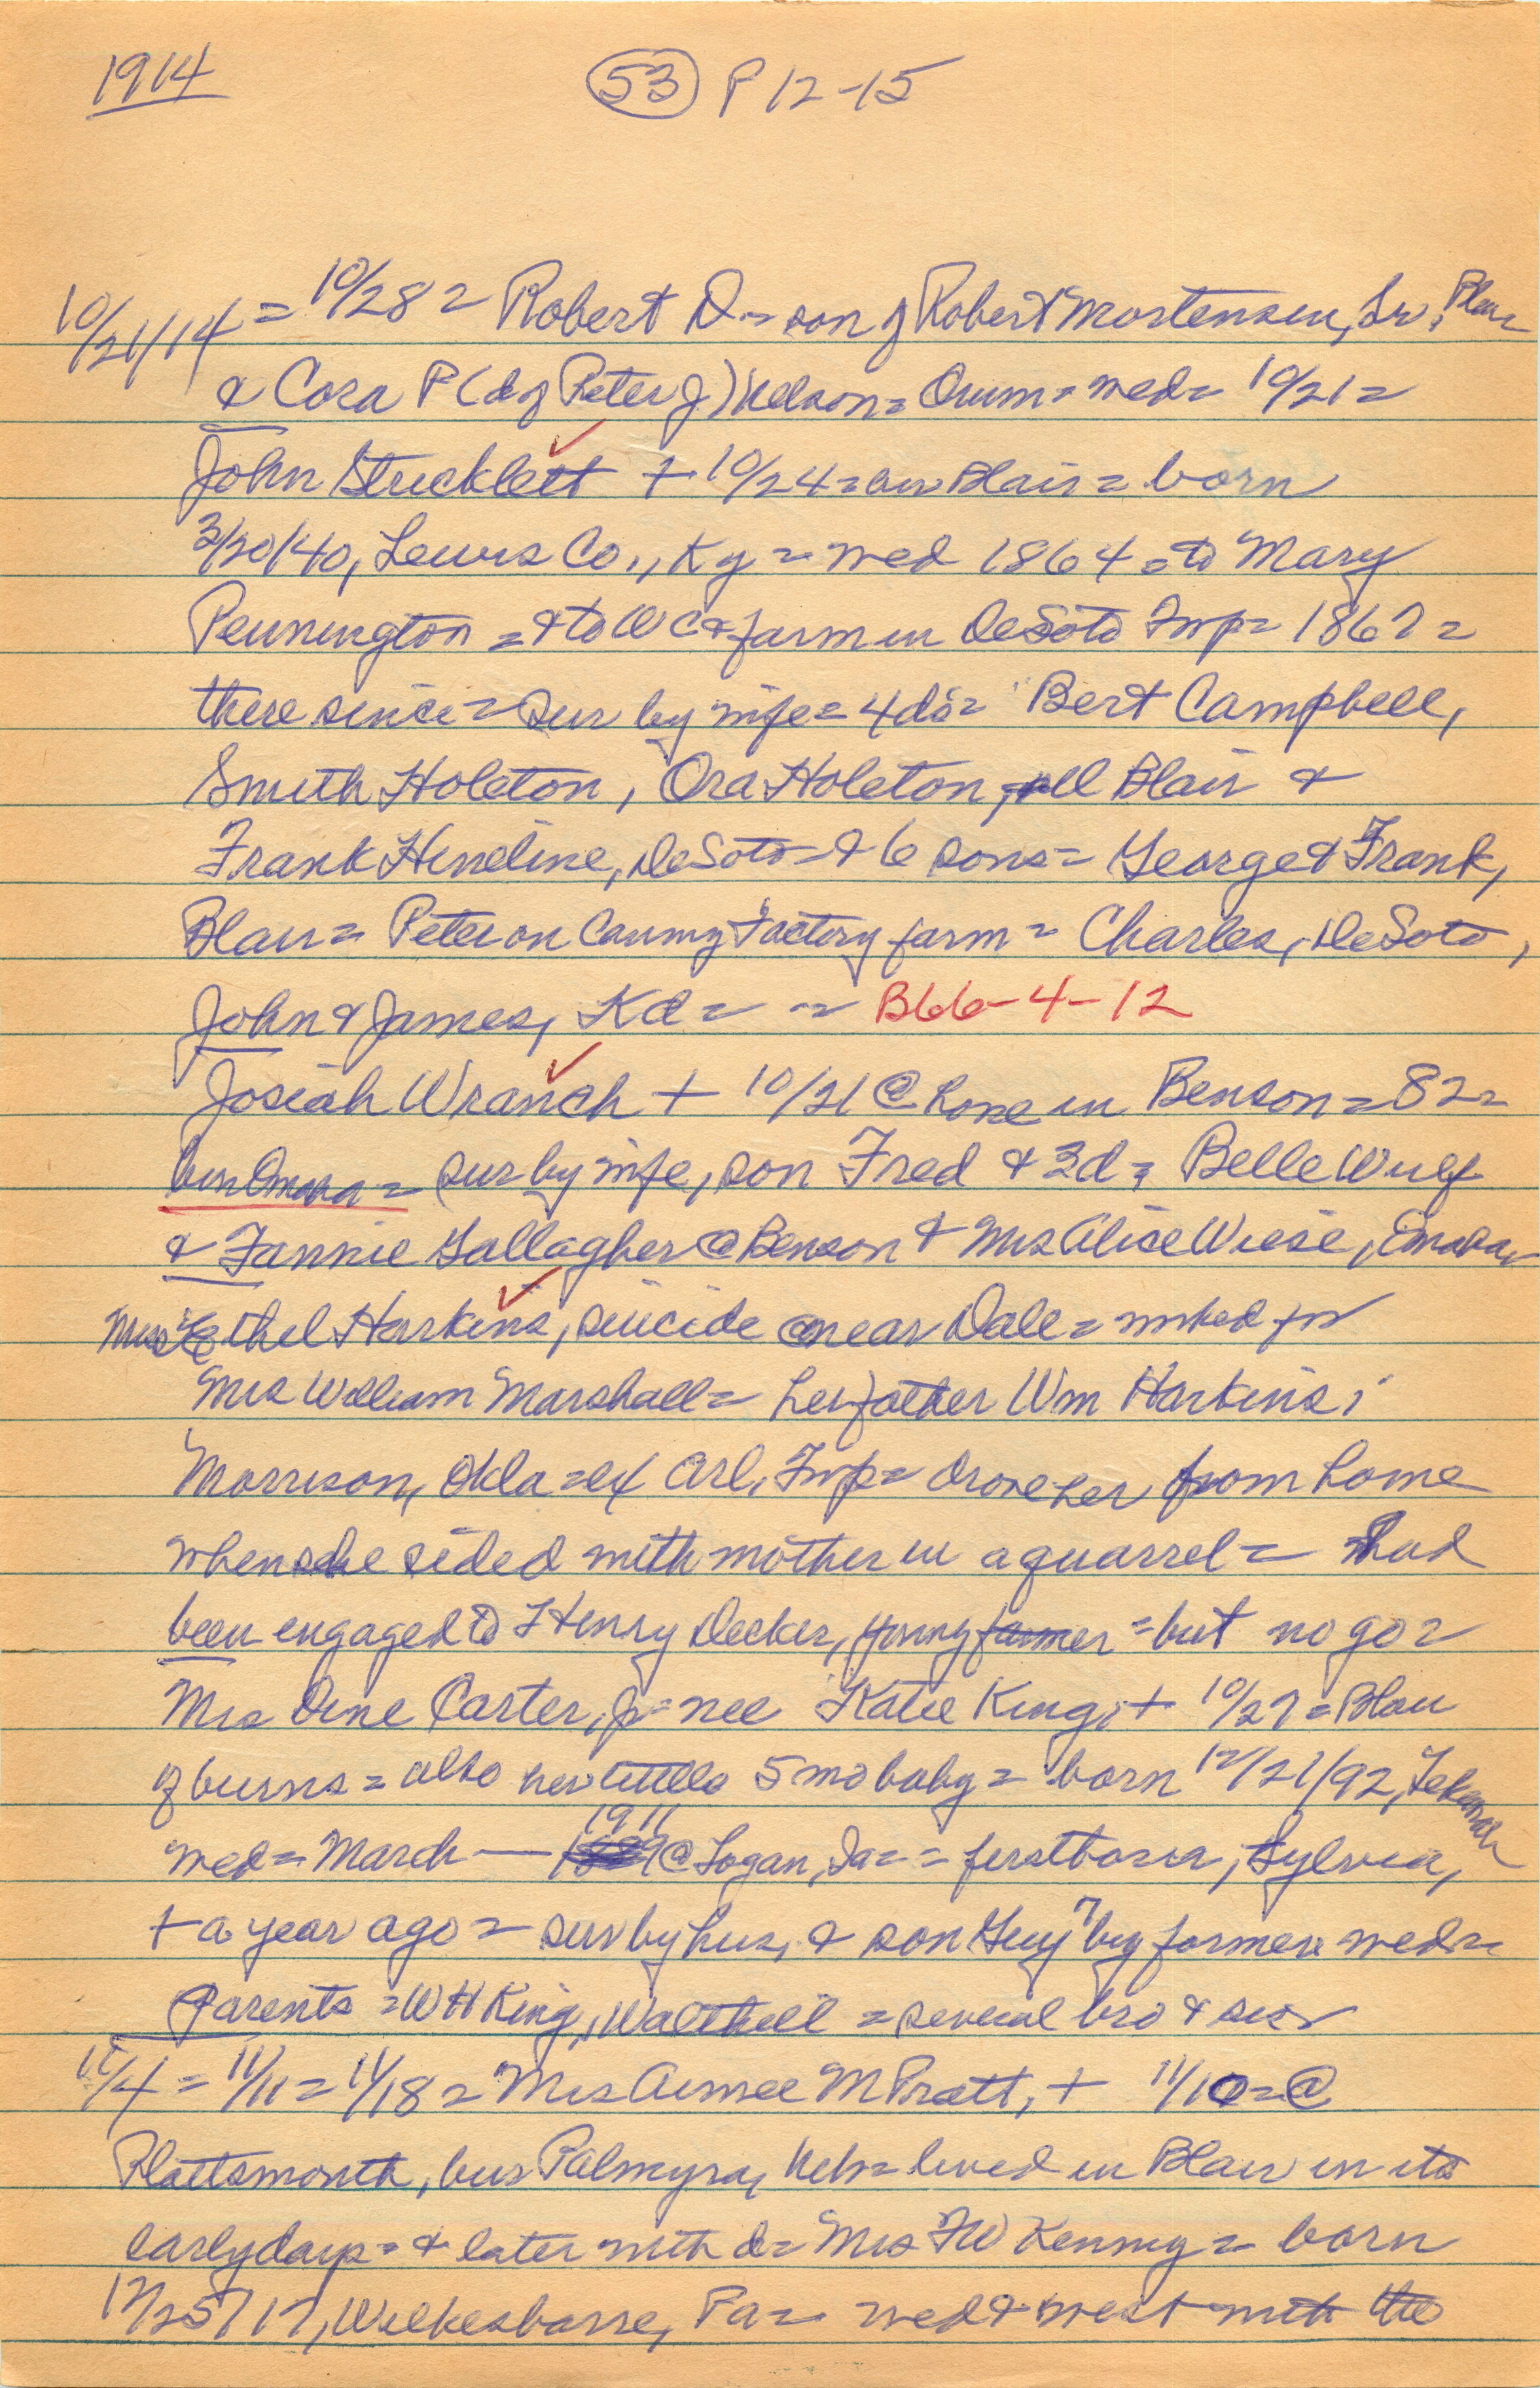 1914
53 P 12-15
10/21/14 = 10/28 = Robert D = son of Robert Mortensen, Sr, Blair
& Cora P (d of Peter J) Nelson = Orum = wed = 10/21 =
John Stricklett + 10/24 = bur Blair = born
3/20/40, Lewis Co., Ky = wed 1864 = to Mary
Pennington = & to WC & farm in DeSoto Twp = 1867 =
there since = sur by wife = 4 ds = Bert Campbell,
Smith Holeton, Ora Holeton, all Blair &
Frank Hineline, DeSoto = & 6 sons = George & Frank,
Blair = Peter on Canning Factory farm = Charles, DeSoto,
John & James, Kd = = B66-4-12
Josiah Wranch + 10/21 @ home in Benson = 82 =
bur Omaha = sur by wife, son Fred & 3d = Belle Wulf
& Fannie Gallagher @ Benson & Mrs Alice Wiese, Omaha
Miss Ethel Harkins, suicide @ near Dale = worked for
Mrs William Marshall = her father Wm Harkins,
Morrison, Okla = ex Arl, Twp = drove her from home
when she sided with mother in a quarrel = had
been engaged to Henry Decker, young farmer = but no go =
Mrs Carter, Jr = nee Katie King, + 10/27 = Blair
of burns = also her 5 mo baby = born 12/21/92, Tekamah
wed = March — 1911 @ Logan, Ia = = first born, Sylvia,
+ a year ago = sur by hus, & son Guy 7 by former wed =
Parents = W H King, Walthill = several bro & sis
11/4 = 11/11 = 11/18 = Mrs Aimee M Pratt, + 11/10 = @
Plattsmouth, bur Palmyra, Neb = lived in Blair in its
early days = & later with d = Mrs F W Kenny = born
12/25/17, Wilkesbarre, Pa = wed & west with the